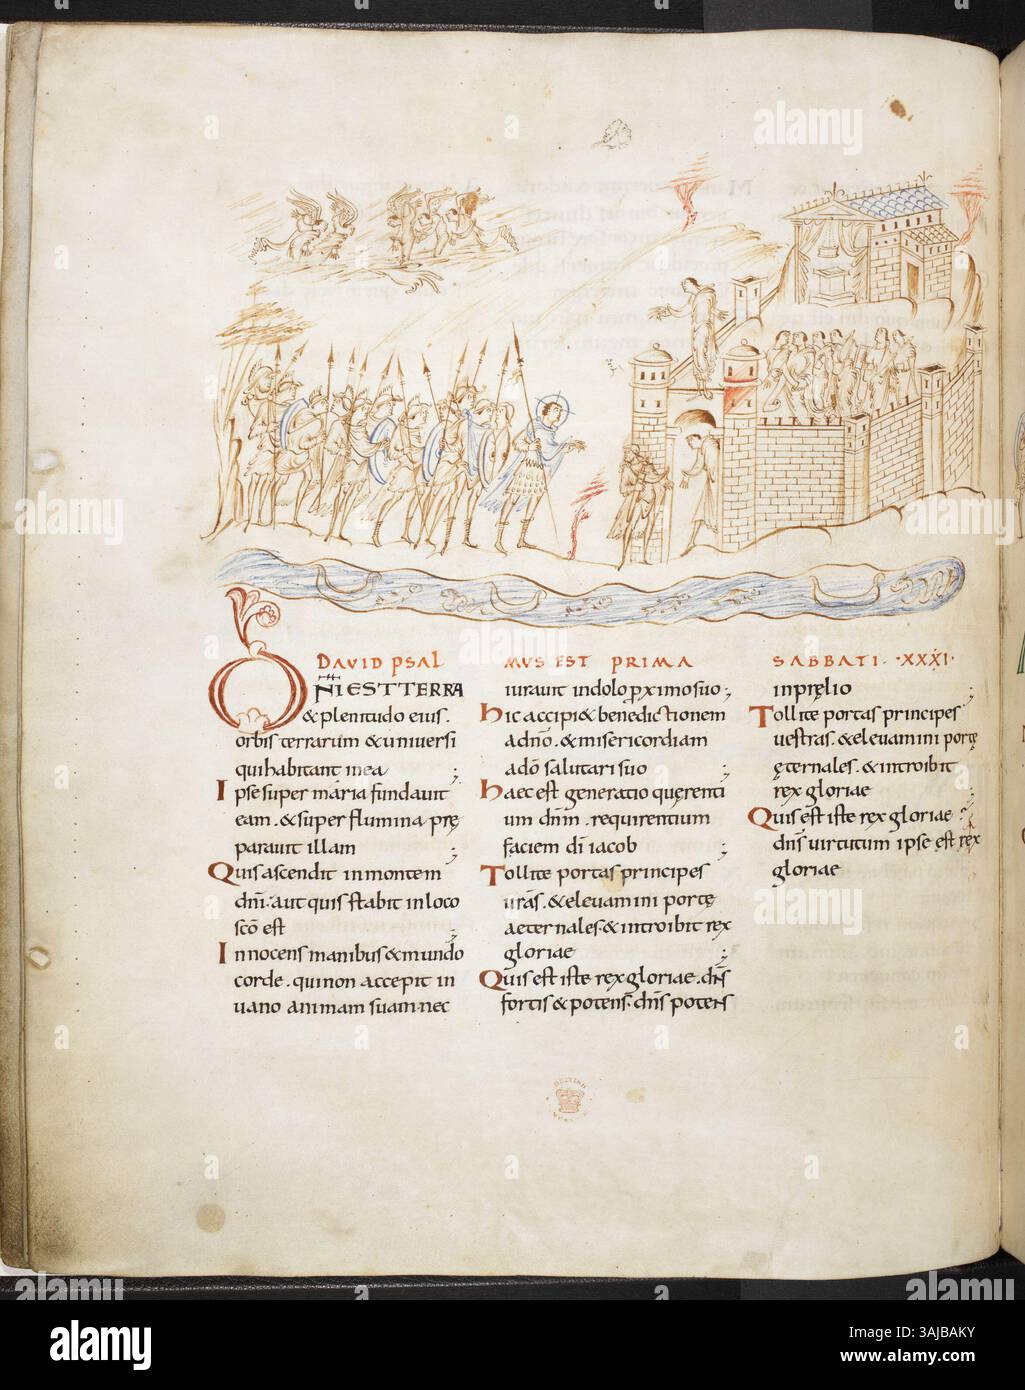 DAVID PSAL
DÑI EST TERRA
& plenitudo eius.
orbis terrarum & uniuersi
qui habitant in ea ;
Ipse super maria fundauit
eam . & super flumina prę
parauit illam ;
Quis ascendit in montem
dñi. aut quis stabit in loco
sc̄o est
Innocens manibus & mundo
corde . qui non accepit in
uano animam suam. nec
MUS EST PRIMA
iurauit in dolo proximo suo ;
hic accipi& benedictionem
a dn̄o . & misericordiam
a dō salutari suo ;
haec est generatio quęrenti
um dn̄m . requirentium
faciem dī iacob ;
Tollite portas principes
ur̄as . & eleuamini portę
aeternales . & introibit rex
gloriae ;
Quis est iste rex gloriae . dn̄s
fortis & potens . dn̄s potens
SABBATI · XXXI·
in pręlio ;
Tollite portas principes
uestras . & eleuamini portę
ęternales . & introibit
rex gloriae ;
Quis est iste rex gloriae ?
dn̄s uirtutum ipse est rex
gloriae
alamy
Image ID: 3AJBAKY
www.alamy.com